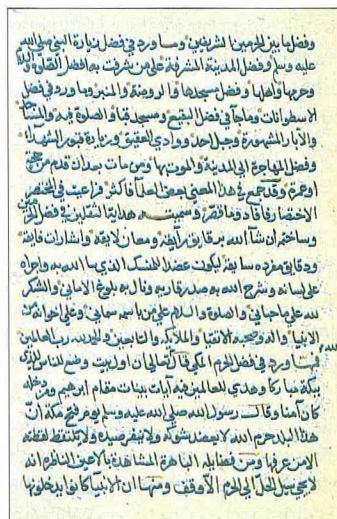 وفضل ما بين الحرمين الشريفين وما ورد في فضل زيارة النبي صلى الله
عليه وسلم وفضل المدينة المشرفة على من شرفت به افضل الصلاة والسلام
وحرمها واهلها وفضل مسجدها والروضة والمنبر وما ورد في فضل
الاسطوانات وما جاء في فضل البقيع ومسجد قبا والصلاة فيه والمساجد
والابار المشهورة وجبل احد ووادي العقيق وزيارة قبور الشهداء
وفضل المهاجرة الى المدينة والموت بها ومن مات بعد ان قدم من حج
او عمرة وقد جمع في هذا المعنى بعض العلماء فاكثر وراعيت في المختصر
الاختصار فافاد وما قصر وسميت هداية الثقلين في فضل الحرمين
وساختم ان شاء الله برقايق رايقة ومعان لايقة واشارات فايقة
ودقايق مفردة سابقة ليكون عضد المنسك الذي من الله به واجراه
على لسانه وشرح الله به صدر قاريه ونال به بلوغ الاماني والشكر
لله على ما حباني والصلاة والسلام على من باسمه سماني وعلى اخوانه من
الانبياء واله وصحبه الاتقيا والملائكة والتابعين والحمد لله رب العالمين
فيما ورد في فضل الحرم المكي قال تعالى ان اول بيت وضع للناس للذي
ببكة مباركا وهدى للعالمين فيه ايات بينات مقام ابرهيم ومن دخله
كان آمنا وقال رسول الله صلى الله عليه وسلم يوم فتح مكة ان
هذا البلد حرم الله لا يعضد شوكه ولا ينفر صيده ولا يلتقط لقطته
الا من عرفها ومن فضايله الباهرة المشاهدة بالاعين الناظرة انه
لا يجي سيل الحل الى الحرم الا وقف ومنها ان الانبيا كانوا يدخلونها